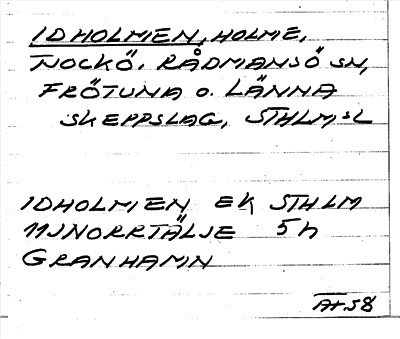 IDHOLMEN, HOLME,
NOCKÖ. RÅDMANSÖ SN,
FRÖTUNA o. LÄNNA
SKEPPSLAG, STHLM,SL
IDHOLMEN EK STHLM
11JNORRTÄLJE 5h
GRANHAMN
At58